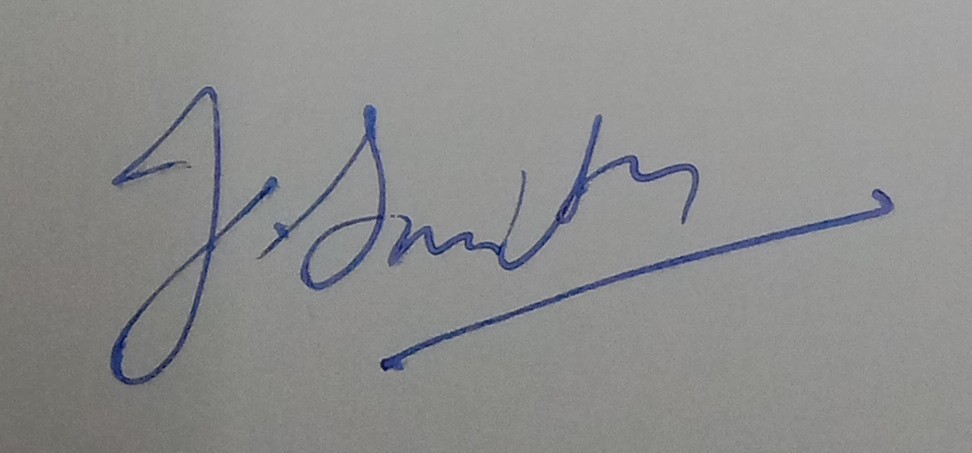 J. Smith